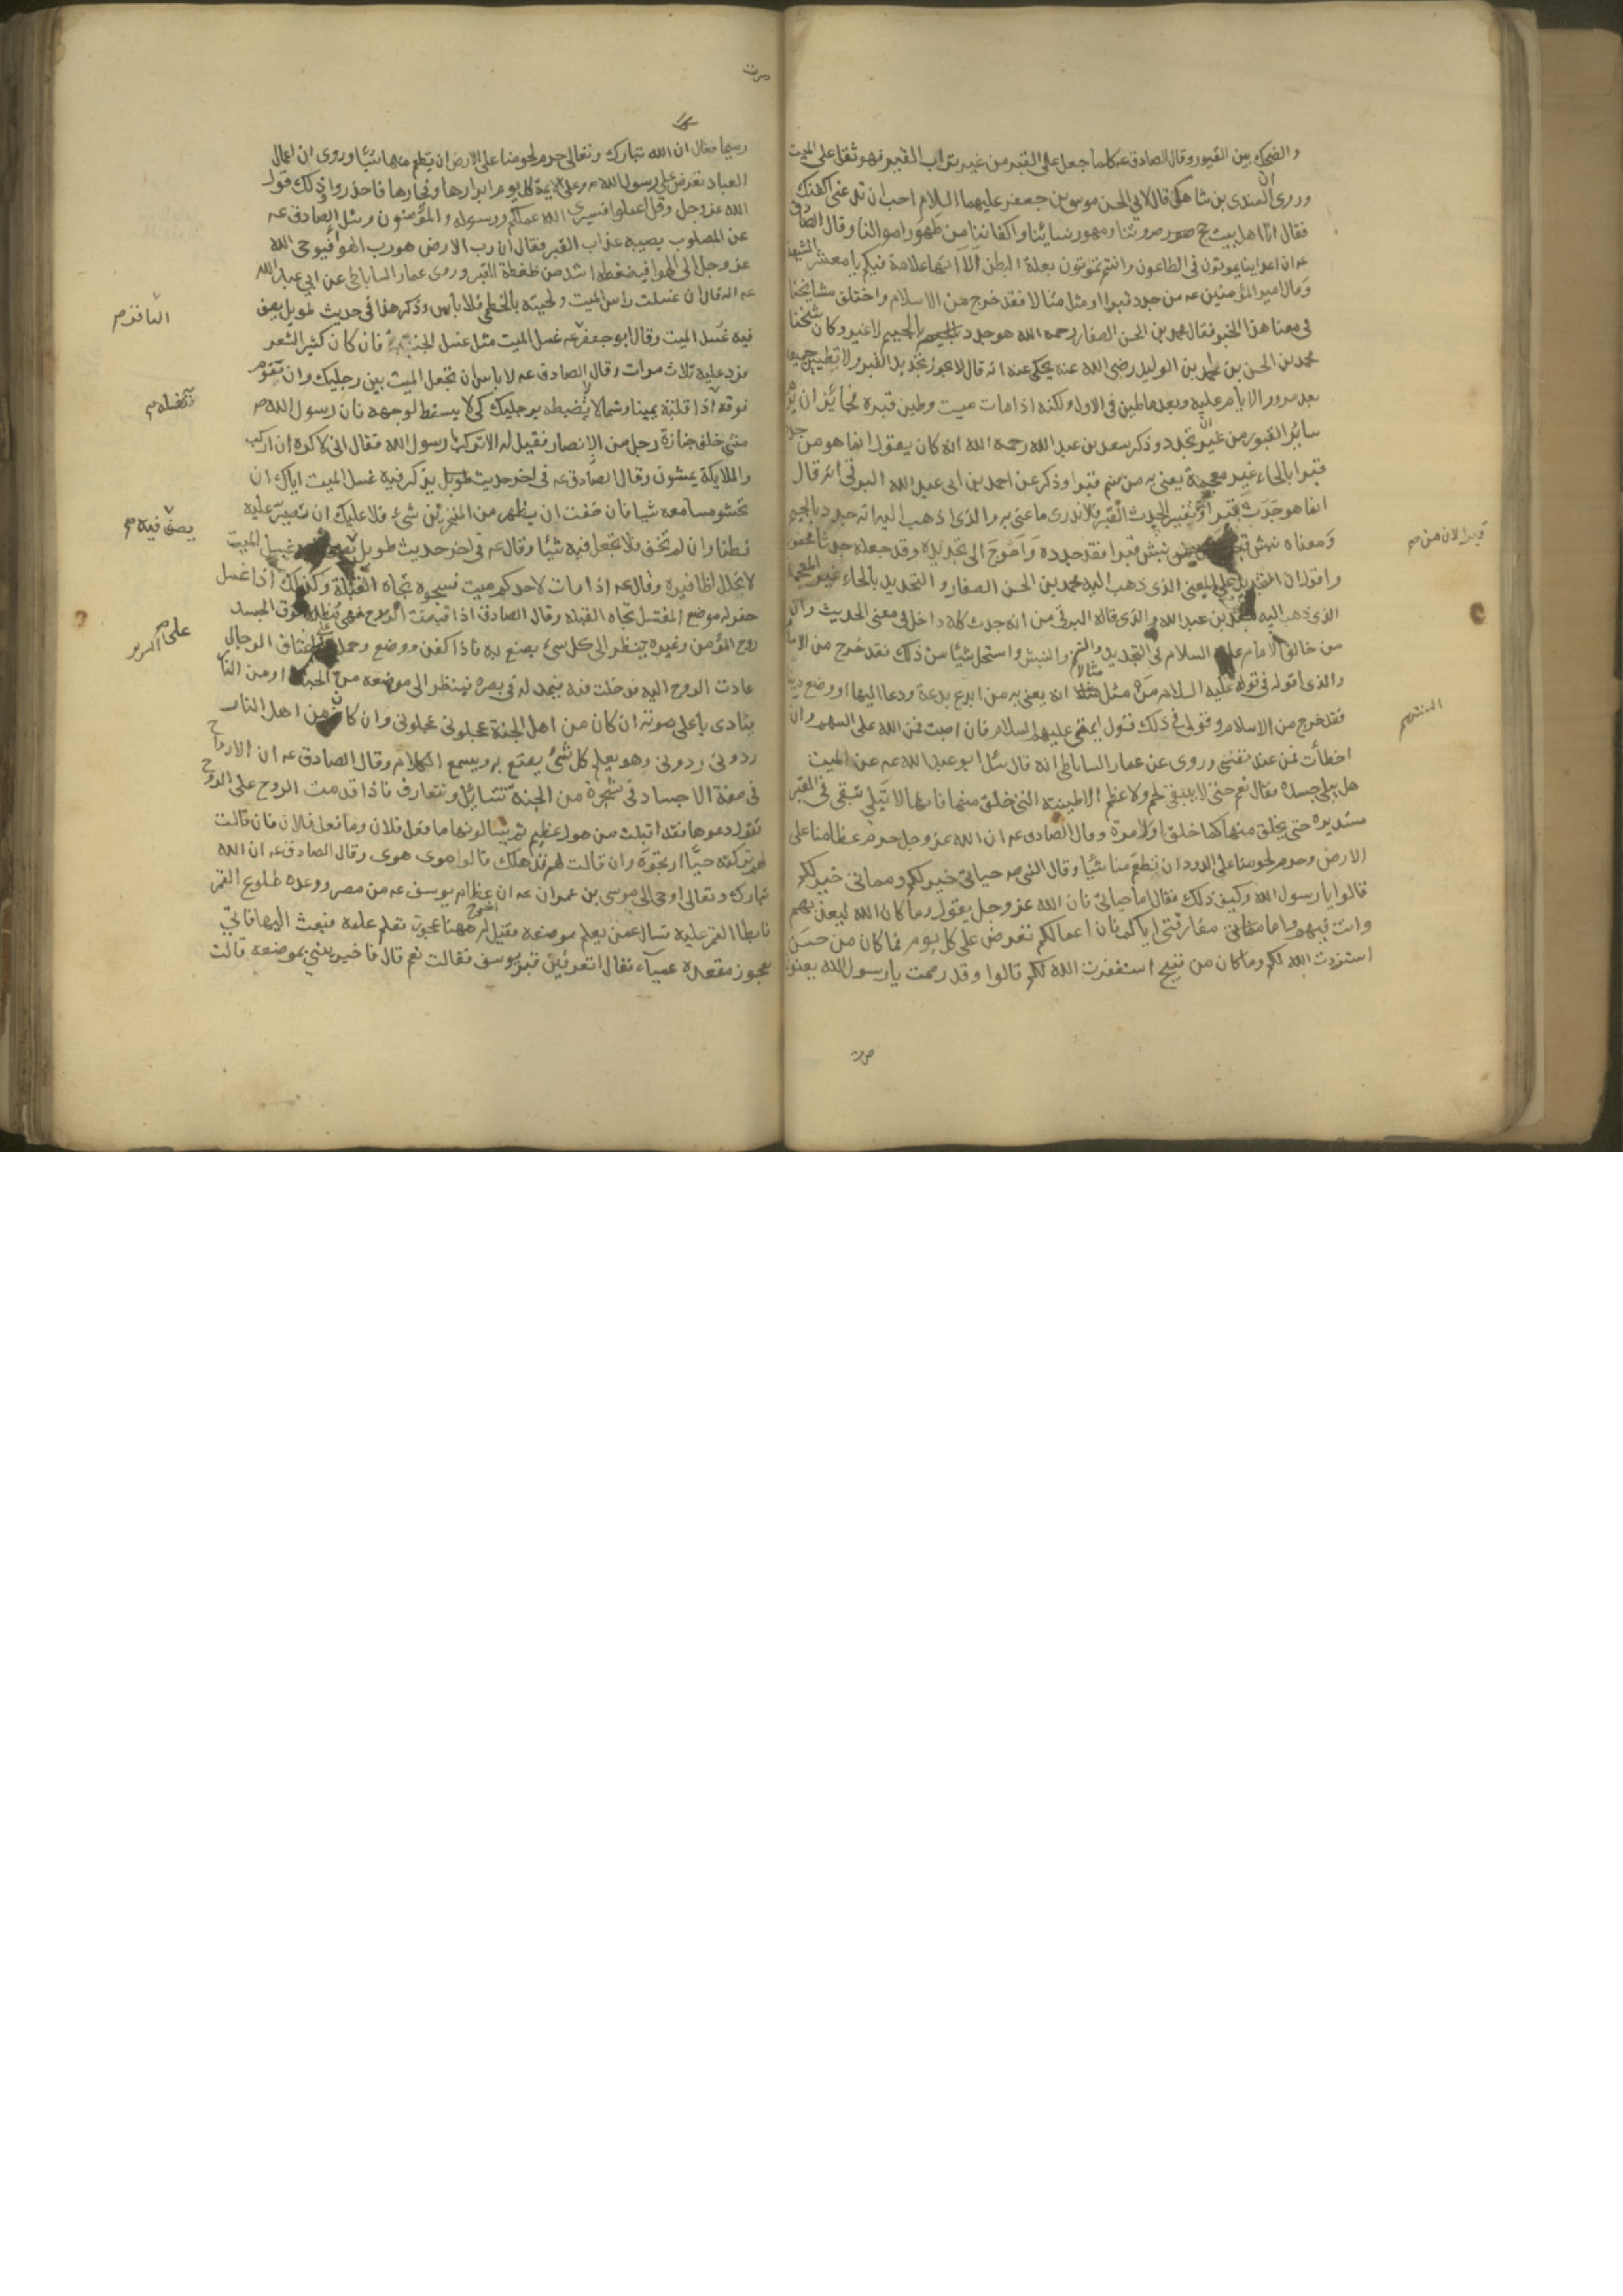 والضحك بين القبور وقال الصادق عه كلما جعل على القبر من غير تراب القبر فهو ثقل على الميت
وروى ان السندى بن شاهك قال لابي الحسن موسى بن جعفر عليهما السلام احب ان تدعنى اكفنك
فقال انا اهل بيت حج صرورتنا ومهور نسائنا واكفاننا من طهور اموالنا وقال الصادق
عه ان اعداءنا يموتون فى الطاعون وانتم تموتون بعلة البطن الا انها علامة فيكم يا معشر الشيعة
وقال امير المؤمنين عه من جدد قبرا او مثل مثالا فقد خرج من الاسلام واختلف مشايخنا
فى معنا هذا الخبر فقال محمد بن الحسن الصفار رحمه الله هو جدد بالجيم لا غير وكان شيخنا
محمد بن الحسن بن احمد بن الوليد رضى الله عنه يحكى عنه انه قال لا يجوز تجديد القبر ولا تطيين جميعه
بعد مرور الايام عليه وبعد ما طين فى الاول ولكنه اذا مات ميت وطين قبره فجائز ان يرم
ساير القبور من غير ان تجدد وذكر سعد بن عبد الله رحمه الله انه كان يقول انما هو من حدد
قبرا بالحاء غير معجمة يعنى به من سنم قبرا وذكر عن احمد بن ابى عبد الله البرقى انه قال
انما هو جدث قبرا وتفسير الجدث القبر فلا ندرى ما عنى به والذى اذهب اليه انه جدد بالجيم
ومعناه نبش قبرا نبش قبرا فقد جدده واحوج الى تجديده وقد جعله جدثا محفورا
واقول ان التجديد على المعنى الذى ذهب اليه محمد بن الحسن الصفار والتحديد بالحاء غير المعجمة
الذى ذهب اليه سعد بن عبد الله والذى قاله البرقى من انه جدث كله داخل فى معنى الحديث وان
من خالف الامام عليه السلام فى التجديد والتسنيم والنبش واستحل شيئا من ذلك فقد خرج من الاسلام
والذى اقوله فى قوله عليه السلام من مثل مثالا انه يعنى به من ابدع بدعة ودعا اليها او وضع دينا
فقد خرج من الاسلام وقولى فى ذلك قول ايمتى عليهم السلام فان اصبت فمن الله على السهم وان
اخطأت فمن عند نفسى وروى عن عمار الساباطى انه قال سئل ابو عبد الله عه عن الميت
هل يبلى جسده فقال نعم حتى لا يبقى لحم ولا عظم الا طينته التى خلق منها فانها لا تبلى تبقى فى القبر
مستديرة حتى يخلق منها كما خلق اول مرة وقال الصادق عه ان الله عز وجل حرم عظامنا على
الارض وحرم لحومنا على الدود ان تطعم منا شيئا وقال النبى صه حياتى خير لكم ومماتى خير لكم
قالوا يا رسول الله وكيف ذلك فقال اما حياتى فان الله عز وجل يقول وما كان الله ليعذبهم
وانت فيهم واما مفارقتى اياكم فان اعمالكم تعرض على كل يوم فما كان من حسن
استزدت الله لكم وما كان من قبيح استغفرت الله لكم قالوا وقد رممت يا رسول الله يعنون
قبرا لان من صه
التسنيم
رميما فقال ان الله تبارك وتعالى حرم لحومنا على الارض ان يطعم منها شيئا وروى ان اعمال
العباد تعرض على رسول الله صه وعلى الايمة كل يوم ابرارها وفجارها فاحذروا وذلك قول
الله عز وجل وقل اعملوا فسيرى الله عملكم ورسوله والمؤمنون وسئل الصادق عه
عن المصلوب يصيبه عذاب القبر فقال ان رب الارض هو رب الهوا فيوحى الله
عز وجل الى الهوا فيضغطه اشد من ضغطة القبر وروى عمار الساباطى عن ابى عبد الله
عه انه قال ان غسلت راس الميت ولحيته بالخطمى فلا باس وذكر هذا فى حديث طويل يصف
فيه غسل الميت وقال ابو جعفر عه غسل الميت مثل غسل الجنب فان كان كثير الشعر
فزد عليه ثلاث مرات وقال الصادق عه لا باس ان تجعل الميت بين رجليك وان تقوم
فوقه اذا قلبته يمينا وشمالا تضبطه برجليك كى لا يسقط لوجهه فان رسول الله صه
مشى خلف جنازة رجل من الانصار فقيل له الا تركب يا رسول الله فقال انى لاكره ان اركب
والملايكة يمشون وقال الصادق عه فى اخر حديث طويل يذكر فيه غسل الميت اياك ان
تحشو مسامعه شيا فان خفت ان يظهر من المنخرين شئ فلا عليك ان تصير عليه
قطنا وان لم تخف فلا تجعل فيه شيئا وقال عه فى اخر حديث طويل غسل الميت
لا تخلل اظافيره وقال عه اذا مات لاحدكم ميت فسجوه تجاه القبلة وكذلك اذا غسل
حفر له موضع المغتسل تجاه القبلة وقال الصادق اذا قبضت الروح فهى مظلة فوق الجسد
روح المؤمن وغيره ينظر الى كل شئ يصنع به فاذا كفن ووضع وحمل على اعناق الرجال
عادت الروح اليه فدخلت فيه فيمد له فى بصره فينظر الى موضعه من الجنة او من النار
ينادى باعلى صوته ان كان من اهل الجنة عجلونى عجلونى وان كان من اهل النار
ردونى ردونى وهو يعلم كل شئ يصنع به ويسمع الكلام وقال الصادق عه ان الارواح
فى صفة الاجساد فى شجرة من الجنة تتسايل وتتعارف فاذا قدمت الروح على الروح
تقول دعوها فقد اقبلت من هول عظيم ثم يسالونها ما فعل فلان وما فعل فلان فان قالت
لهم تركته حيا ارتجوه وان قالت لهم قد هلك قالوا هوى هوى وقال الصادق عه ان الله
تبارك وتعالى اوحى الى موسى بن عمران عه ان اخرج عظام يوسف عه من مصر ووعده طلوع القمر
فابطا القمر عليه فسال عمن يعلم موضعه فقيل له ههنا عجوز تعلم علمه فبعث اليها فاتى
بعجوز مقعدة عمياء فقال اتعرفين قبر يوسف فقالت نعم قال فاخبرينى بموضعه قالت
يصف فيه صه
على السرير صه